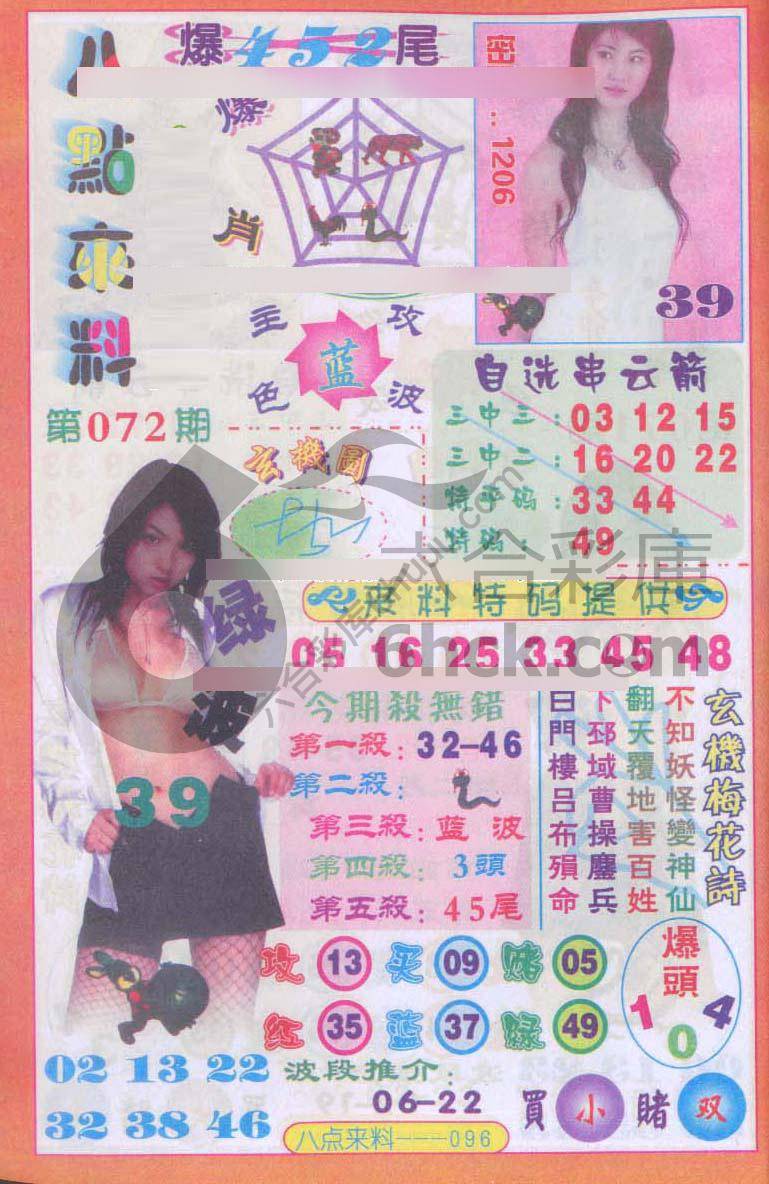 八點來料
爆452尾
爆肖
1206
39
主攻
蓝
色波
第072期
玄機圖
自选串云箭
三中三:03 12 15
三中二:16 20 22
特平码:33 44
特码:49
六合彩庫
6hck.com
绿波
39
来料特码提供
05 16 25 33 45 48
今期殺無錯
第一殺:32-46
第二殺:
第三殺:蓝波
第四殺:3頭
第五殺:45尾
玄機梅花詩
不知妖怪變神仙
翻天覆地害百姓
下邳域曹操鏖兵
白門樓呂布殞命
攻 13 买 09 赌 05
红 35 蓝 37 绿 49
爆頭
1 0 4
02 13 22
32 38 46
波段推介:
06-22
買小賭双
八点来料---096